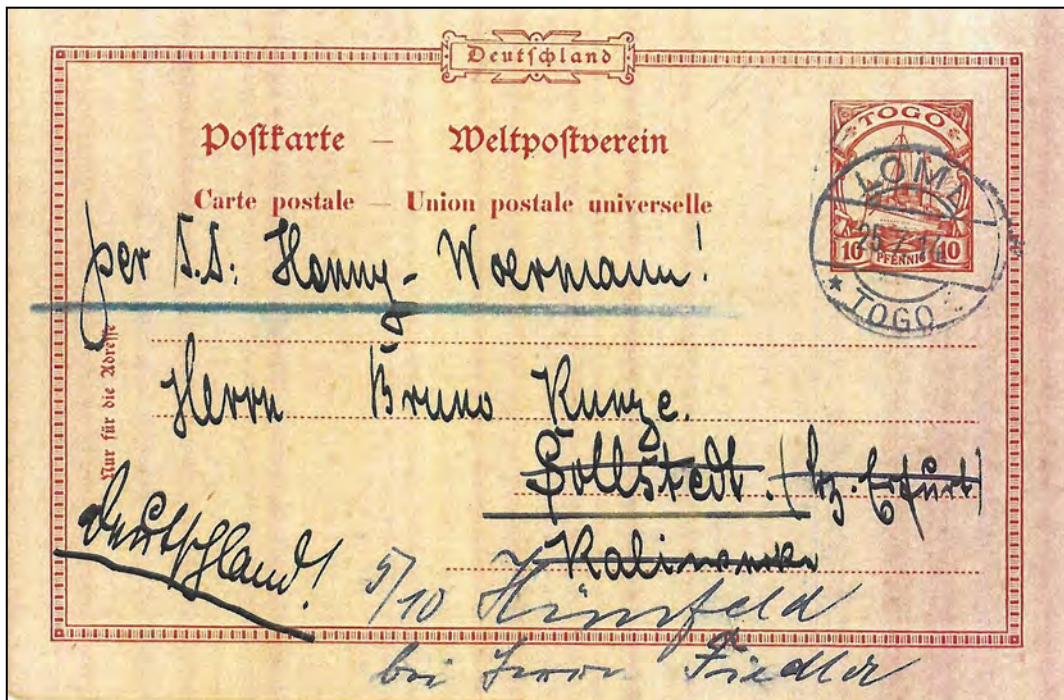 Deutschland
Postkarte — Weltpostverein
Carte postale — Union postale universelle
TOGO
10 PFENNIG 10
LOME
25.7.14
* TOGO
per S.S: Henny-Woermann!
Nur für die Adresse
Herrn Bruno Kunze.
Sollstedt. (bz. Erfurt)
Kaliwerke
Deutschland!
5/10 Hünfeld
bei Herrn Fiedler